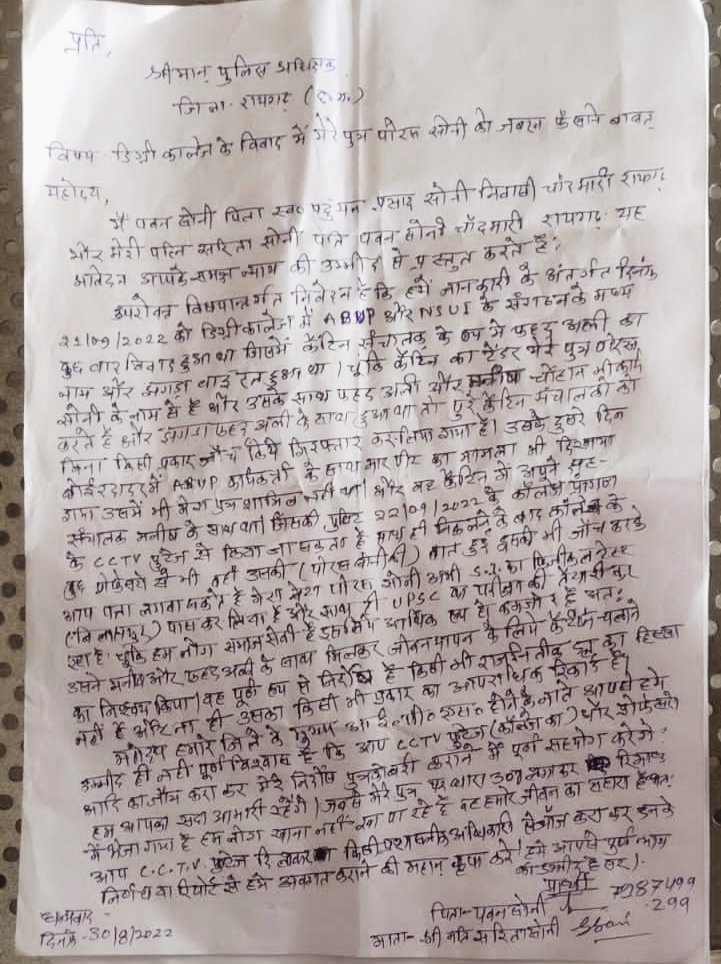 प्रति,
श्रीमान् पुलिस अधिक्षक
जिला- रायगढ़ (छ.ग.)
विषय- डिग्री कालेज के विवाद में मेरे पुत्र पोरस सोनी को जबरन फँसाने बाबत्
महोदय,
मैं पवन सोनी पिता स्व० प्रसाद सोनी निवासी चाँदमारी रायगढ़
और मेरी पत्नि सरिता सोनी पति पवन सोनी चाँदमारी रायगढ़ यह
आवेदन आपके समक्ष न्याय की उम्मीद से प्रस्तुत करते है।
उपरोक्त विषयान्तर्गत निवेदन है कि हमें जानकारी के अंतर्गत दिनांक
22/09/2022 को डिग्री कालेज में ABVP और NSUI के संगठन के मध्य
कुछ वाद विवाद हुआ था जिसमें कैंटिन संचालक के रूप में फहद अली का
नाम और झगड़ा हुआ था। चूंकि कैंटिन का टेंडर मेरे पुत्र पोरस
सोनी के नाम से है और उसके साथ फहद अली और मनीष चौहान भी कार्य
करते है और झगड़ा फहद अली के साथ हुआ था तो पुरे कैंटिन संचालको को
बिना किसी प्रकार जाँच किये गिरफ्तार कर लिया गया है। उसके दुसरे दिन
में ABVP कार्यकर्ता के साथ मार पीट का मामला भी दिखाया
गया उसमें भी मेरा पुत्र शामिल नहीं था। और वह कैंटिन में अपने सह-
संचालक मनीष के साथ था। जिसकी पुष्टि 22/09/2022 के कॉलेज प्रांगण
के CCTV फुटेज से किया जा सकता है साथ ही निकलने के बाद कॉलेज के
कुछ प्रोफेसरो से भी वहाँ उसकी (पोरस सोनी की) बात हुई इसकी भी जाँच करके
आप पता लगवा सकते है मेरा बेटा पोरस सोनी अभी S.I. का फिजीकल टेस्ट
(बिलासपुर) पास कर लिया है और साथ ही UPSC का परीक्षा की तैयारी कर
रहा है। चूंकि हम लोग समाज सेवी है इसलिये आर्थिक रूप से कमजोर है अतः
उसने मनीष और फहद अली के साथ मिलकर जीवन यापन के लिये कैंटिन चलाने
का निश्चय किया। वह पूर्ण रूप से निर्दोष है किसी भी राजनितीक दल का हिस्सा
नहीं है और ना ही उसका किसी भी प्रकार का आपराधिक रिकार्ड है।
महोदय हमारे जिले के होने के नाते आपसे हमे
उम्मीद ही नहीं पूर्ण विश्वास है कि आप CCTV फुटेज (कॉलेज का) और प्रोफेसरो
आदि का जाँच करा कर मेरे निर्दोष पुत्र को बरी कराने में पूर्ण सहयोग करेंगे।
हम आपका सदा आभारी रहेंगे। जबसे मेरे पुत्र पर धारा 307 लगाकर रिमाण्ड
में भेजा गया है हम लोग खाना नहीं खा पा रहे है वह हमारे जीवन का सहारा है अतः
आप C.C.T.V. फुटेज किसी प्रशासनिक अधिकारी से जाँच करा कर उनके
निर्णय या रिपोर्ट से हमे अवगत कराने की महान् कृपा करे। हमे आपसे पूर्ण न्याय
की उम्मीद है सर।
प्रार्थी 7987499
299
पिता- पवन सोनी
माता- श्रीमति सरिता सोनी
धन्यवाद-
दिनाँक- 30/8/2022